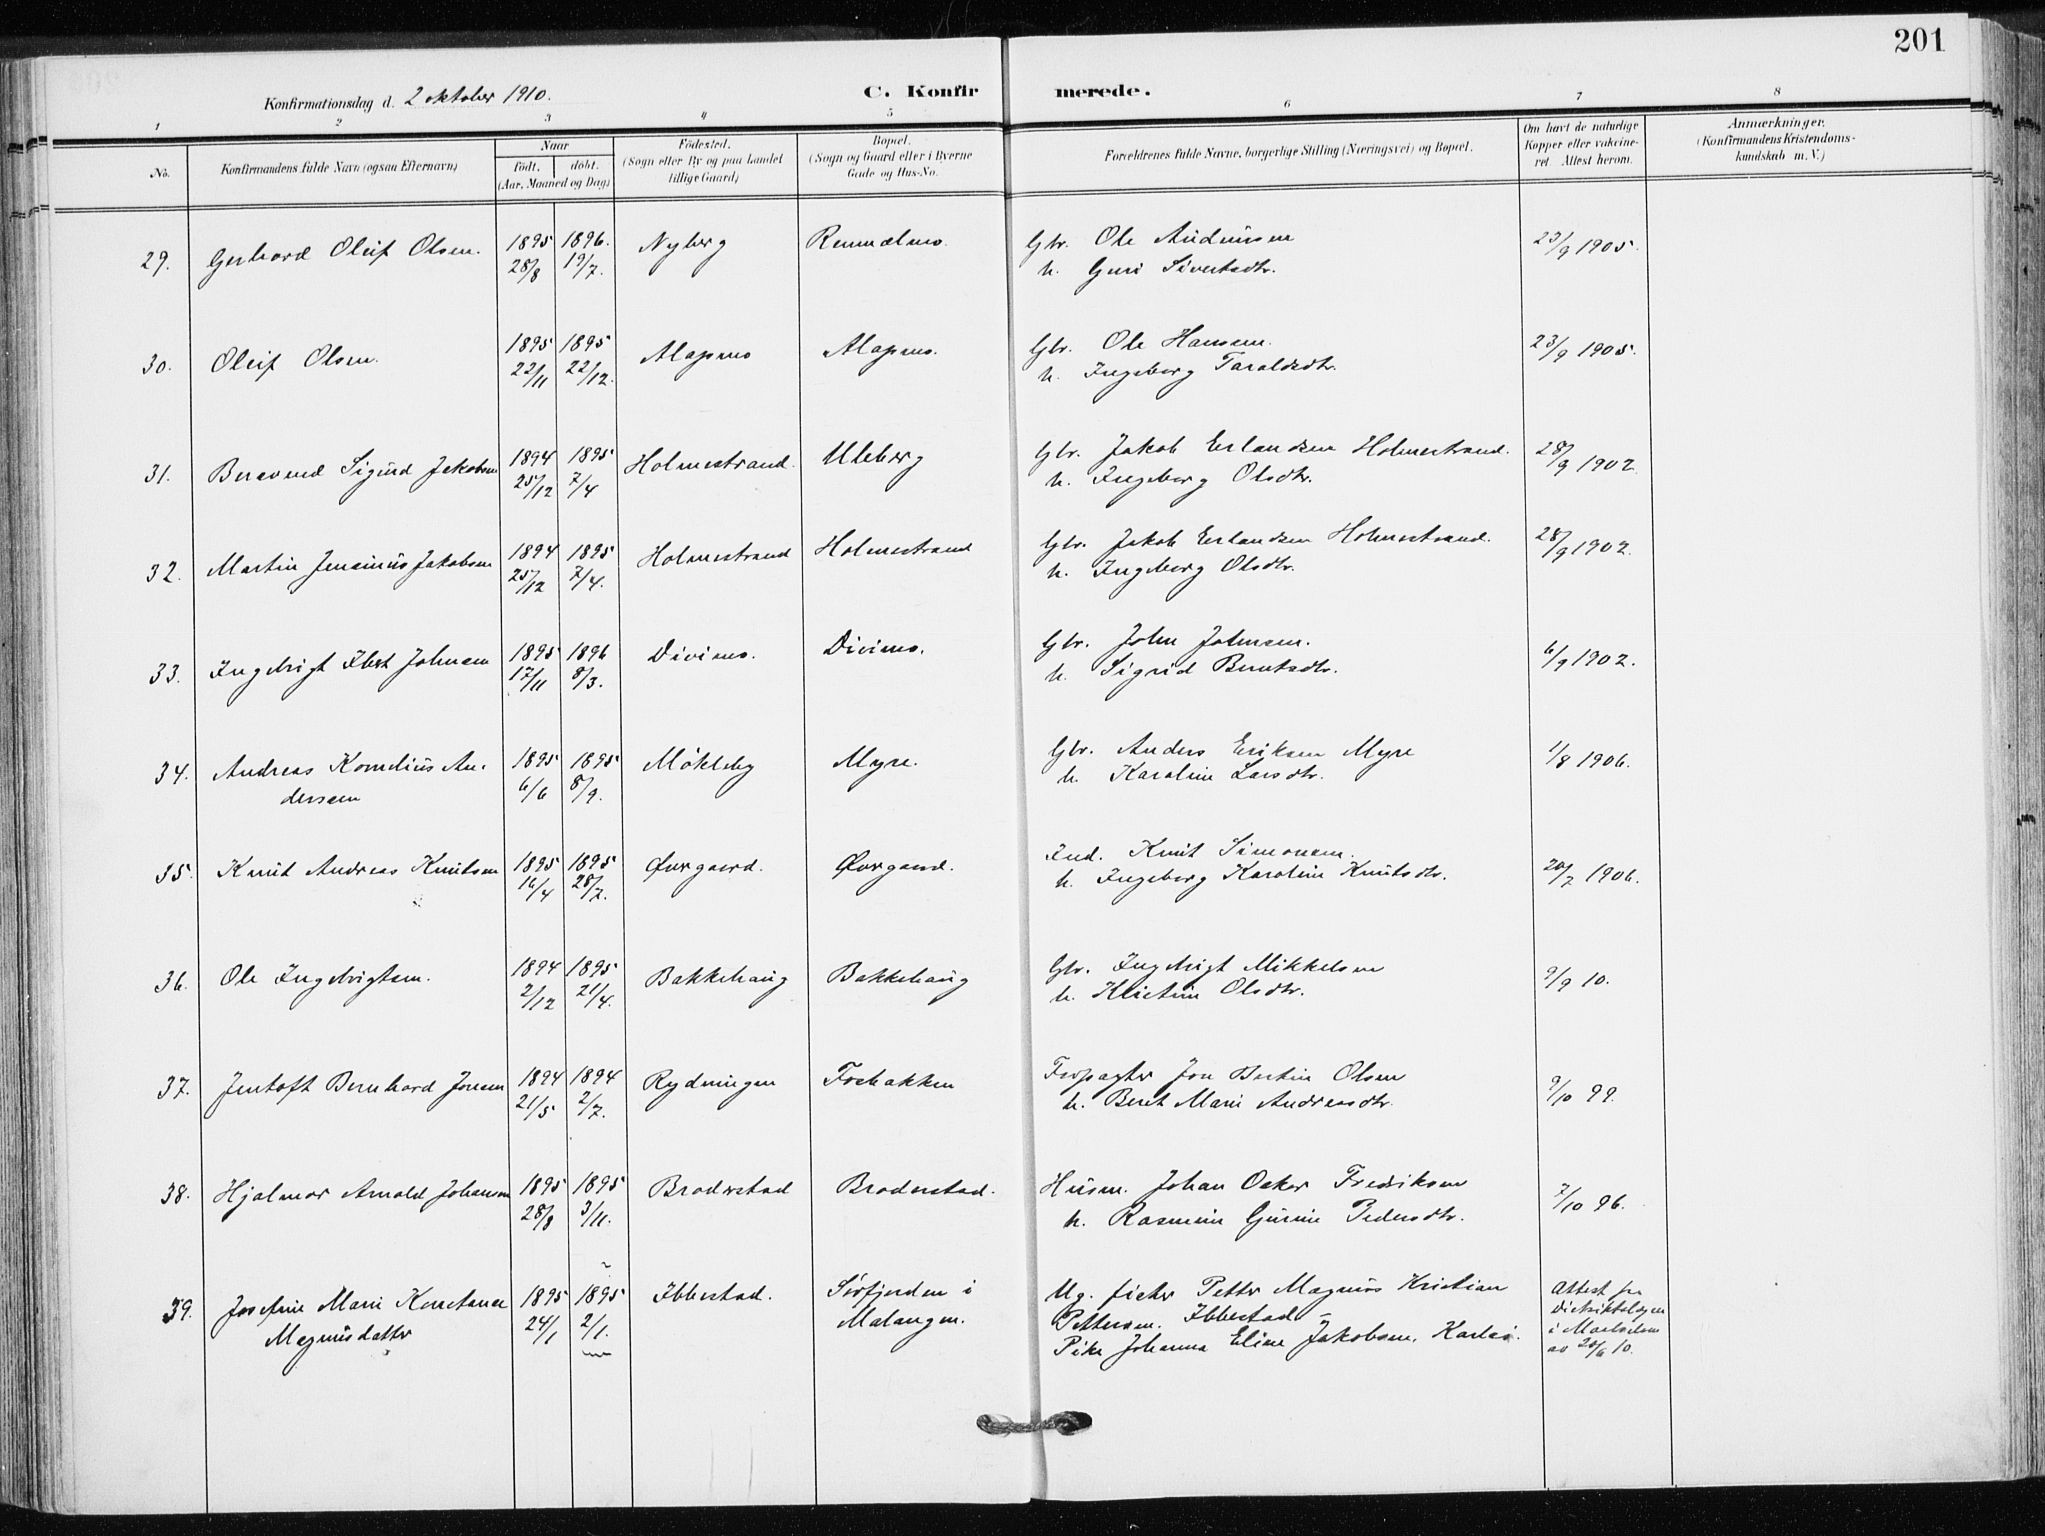 201
Konfirmationsdag d. 2 oktober 1910.
C. Konfirmerede.
1 2 3 4 5 6 7 8
No.
Konfirmandens fulde Navn (ogsaa Efternavn)
Naar
født. døbt.
(Aar, Maaned og Dag)
Fødested.
(Sogn eller By og paa Landet
tillige Gaard)
Bopæl.
(Sogn og Gaard eller i Byerne
Gade og Hus-No.
Forældrenes fulde Navne, borgerlige Stilling (Næringsvei) og Bopæl.
Om havt de naturlige
Kopper eller vakcine-
ret. Attest herom.
Anmærkninger.
(Konfirmandens Kristendoms-
kundskab m. V.)
29. Gerhard Oleif Olsen. 1895 1896. Nyberg Gbr. Ole Audunsen 23/9 1905.
28/8 19/7. h. Guri Sivertsdtr.
30. Oleif Olsen. 1895 1895 Alapmo Alapmo. Gbr. Ole Hansen. 23/9 1905.
22/11 22/12. h. Ingeborg Taraldsdtr.
31. Sigurd Jakobsen 1894 1895 Holmestrand. Uleberg Gbr. Jakob Erlandsen Holmestrand. 28/9 1902.
25/12 7/4 h. Ingeborg Olsdtr.
32. Martin Jensinius Jakobsen 1894 1895 Holmestrand Holmestrand Gbr. Jakob Erlandsen Holmestrand. 28/9 1902.
25/12 7/4. h. Ingeborg Olsdtr.
33. Ingebrigt Johnsen 1895 1896 Divimo. Divimo. Gbr. John Johnsen. 6/9 1902.
17/11 8/3. h. Sigrid Berntsdtr.
34. Andreas Kornelius An- 1895 1895 Møkleby Myre. Gbr. Anders Eriksen Myre 1/8 1906.
derssen 6/6 8/9. h. Karoline Larsdtr.
35. Knut Andreas Knutsen 1895 1895 Øvrgaard. Øvrgaard. Ind. Knut Simonsen. 20/7 1906.
16/4 28/7. h. Ingeborg Karoline Knutsdtr.
36. Ole Ingebrigtsen. 1894 1895 Bakkehaug Bakkehaug Gbr. Ingebrigt Mikkelsen 9/9 10.
2/12 21/4. h. Kristine Olsdtr.
37. Jentoft Bernhard Jonsen 1894 1894 Rydningen Fosbakken Forpagter Jon Bertin Olsen 9/10 99.
21/5 2/7. h. Beret Marie Andreasdtr.
38. Hjalmar Arnold Johansen 1895 1895 Broderstad Broderstad. Husm. Johan Oskar Fredriksen 7/10 96.
28/8 3/11. h. Rasmine Gurine Pedersdtr.
39. Josefine Marie Konstanse 1895 1895 Ibbestad. Sørfjorden i Ug. fisker Petter Magnus Kristian Attest fra
Magnusdatter 24/1 2/1. Malangen. Pettersen. Ibbestad – distriktslægen
Pike Johanna Eline Jakobsen, Karlsø. i Maalselven
av 20/6 10.